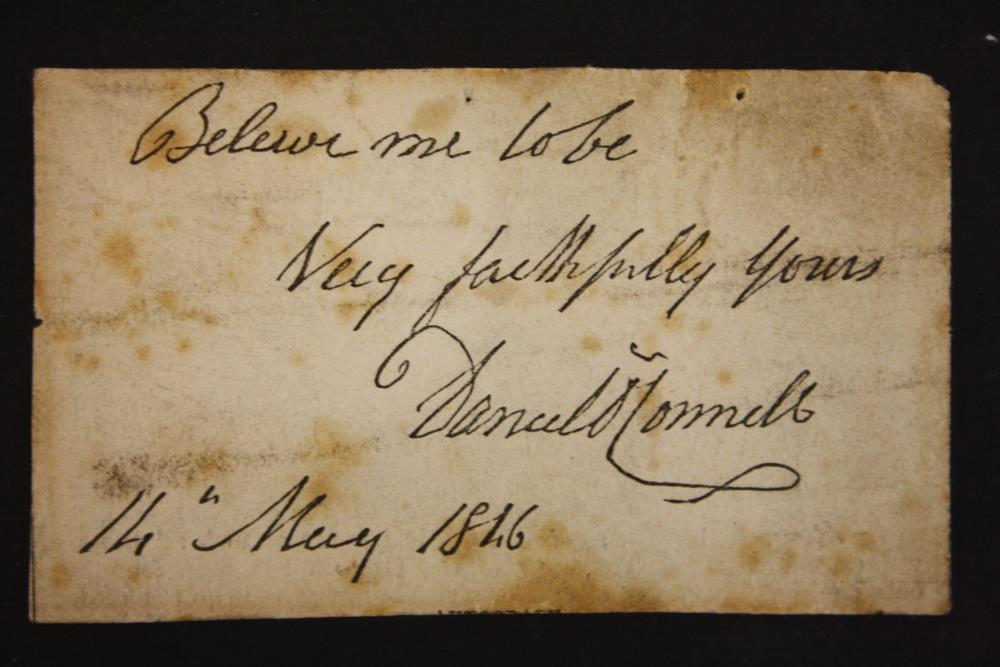 Believe me to be
Very faithfully yours
Daniel O'Connell
14" May 1846
AUTOGRAPH